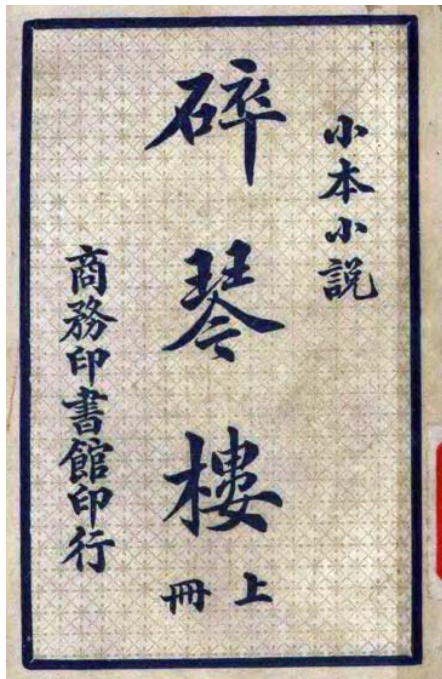 小本小説
碎琴樓
上冊
商務印書館印行